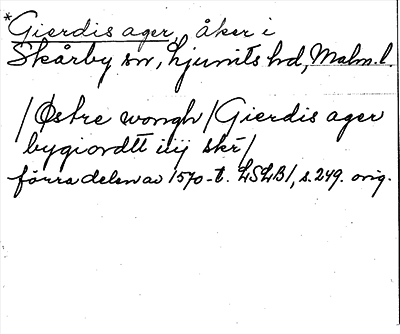 *Gierdis ager, åker i
Skårby sn, Ljunits hd, Malm. l.
/Østre wongh/Gierdis ager
bygiordtt iiij skr/
förra delen av 1570-t. LSLB1, s. 249. orig.